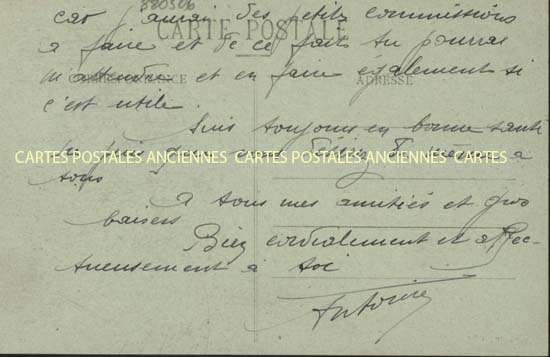 380506
car aurai des petites commissions
CARTE POSTALE
à faire et de ce fait tu pourras
m'attendre et en faire également si
CORRESPONDANCE
ADRESSE
c'est utile.
Suis toujours en bonne santé
CARTES POSTALES ANCIENNES CARTES POSTALES ANCIENNES CARTES POSTALES
que de même à
tous
A tous mes amitiés et gros
baisers
Bien cordialement et affec-
tueusement à toi
Antoine